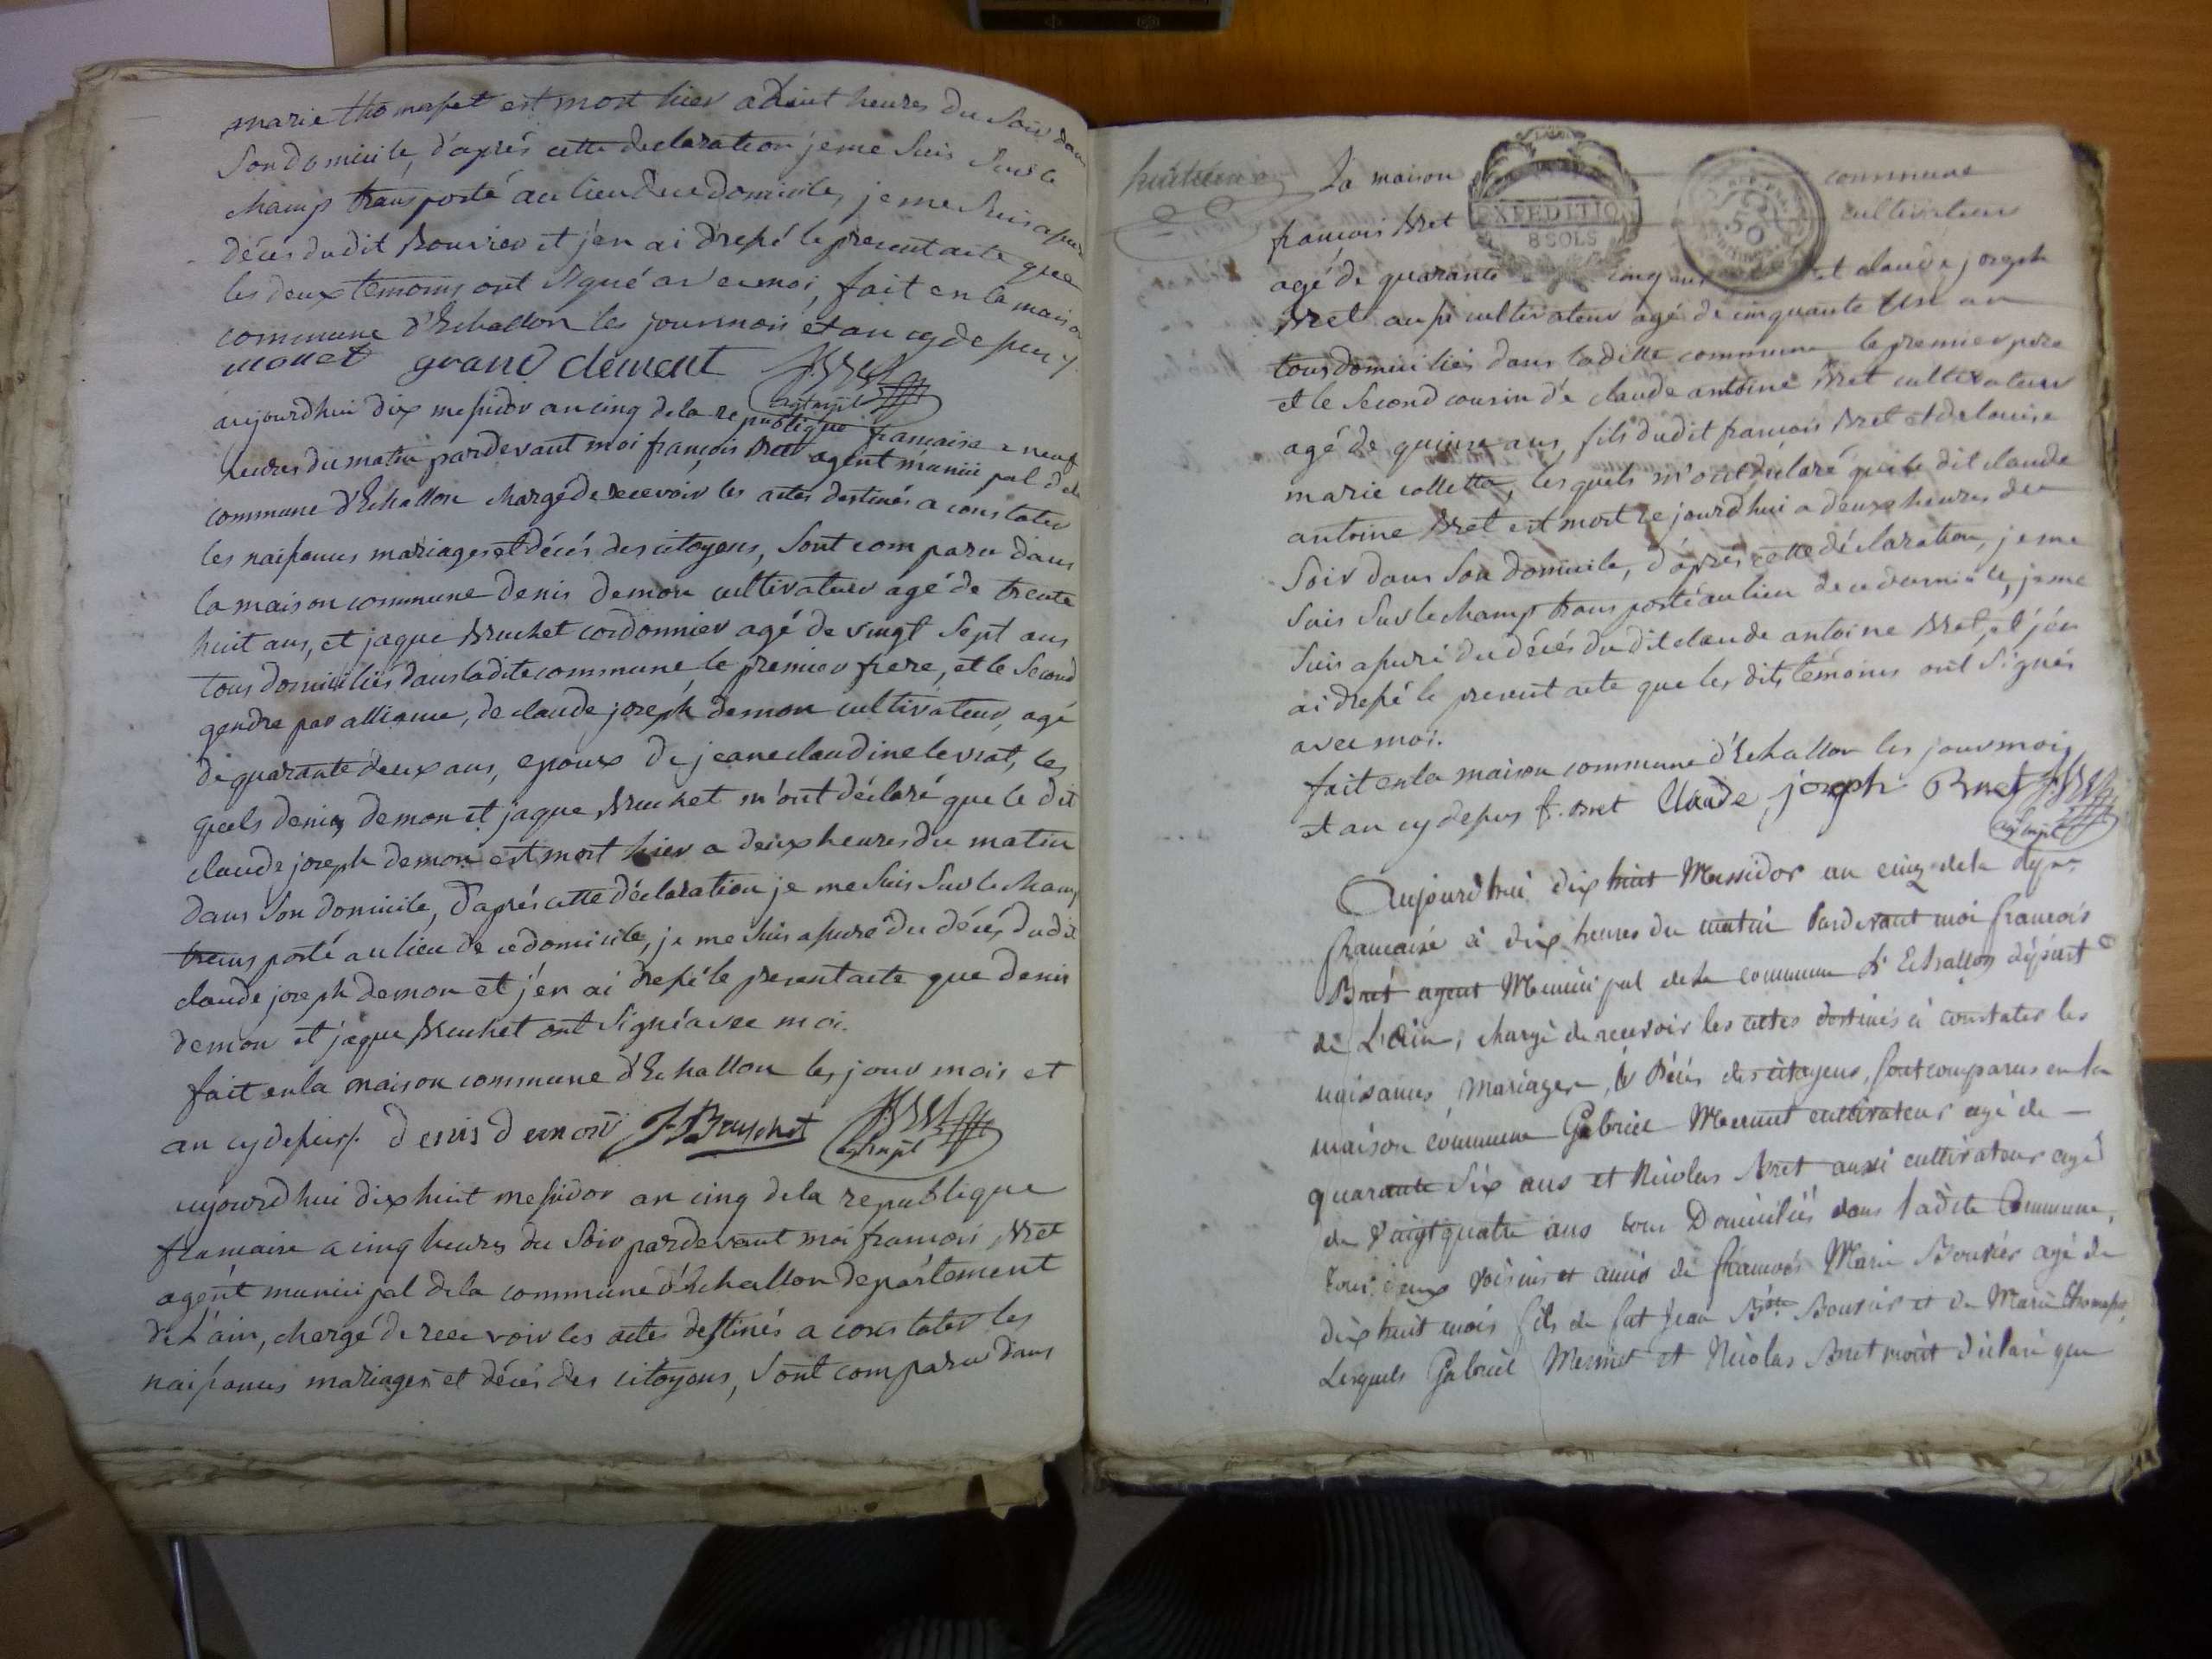 marie thomasset est mort hier a huit heures du Soir dans
Son domicile, d'après cette declaration je me Suis Sur le
champ transporté au lieu de ce domicile, je me Suis assuré
décés dudit Bouvier et j'en ai dressé le present acte que
les deux temoins ont Signé avec moi, fait en la maison
commune d'Echallon les jour mois et an cy depuy
monet grand clement F. Bret
agt mpl
aujourdhui dix messidor an cinq de la republique francaise a neuf
heures du matin pardevant moi françois Bret agent municipal de la
commune d'Echallon chargé de recevoir les actes destinés a constater
les naissances mariages et décés des citoyens, Sont comparu dans
la maison commune denis demon cultivateur agé de trente
huit ans, et jaque Bruchet cordonnier agé de vingt Sept ans
tous domiciliés dans ladite commune, le premier frere, et le Second
gendre par alliance, de claude joseph demon cultivateur, agé
de quarante deux ans, epoux de jeane claudine levrat, les
quels denis demon et jaque Bruchet m'ont déclaré que le dit
claude joseph demon est mort hier a deux heures du matin
dans Son domicile, d'après cette déclaration je me Suis Sur le champ
transporté au lieu de ce domicile, je me Suis assuré du décés dudit
claude joseph demon et j'en ai dressé le present acte que denis
demon et jaque Bruchet ont Signé avec moi.
fait en la maison commune d'Echallon les jour mois et
an cy depuis/. denis demon J Bruchet F. Bret
agt mpl
aujourdhui dix huit messidor an cinq de la republique
francaise a cinq heures du Soir pardevant moi francois Bret
agent municipal de la commune d'Echallon departement
de L'ain, chargé de recevoir les actes destinés a constater les
naissances mariages et décés des citoyens, Sont comparu dans
la maison commune
EXPEDITIO
8 SOLS
50
francois Bret cultivateur
agé de quarante cinq ans et claude joseph
Bret aussi cultivateur agé de cinquante un an
tous domiciliés dans laditte commune le premier pere
et le Second cousin de claude antoine Bret cultivateur
agé de quinse ans, fils dudit francois Bret et de louise
marie colletta, les quels m'ont déclaré que le dit claude
antoine Bret est mort ce jourdhui a deux heures du
Soir dans Son domicile, d'après cette déclaration, je me
Suis Sur le champ transporté au lieu de ce domicile, je me
Suis assuré du décés dudit claude antoine Bret, et j'en
ai dressé le present acte que les dits témoins ont Signés
avec moi.
fait en la maison commune d'Echallon les jour mois
et an cy depuis f. Bret Claude joseph Bret F. Bret
agt mpl
Aujourdhui dix huit Messidor an cinq de la Rque
francaise à dix heures du matin Pardevant moi francois
Bret agent Municipal de la commune d'Echallon dépârt
de L'Ain, chargé de recevoir les actes destinés à constater les
naisances, Mariages, & Décès des citoyens, Sont comparus en la
maison commune Gabriel Mermet cultivateur agé de
quarante Six ans et Nicolas Bret aussi cultivateur agé
de Vaigtquatre ans tous Domiciliés dans ladite Commune,
tous deux voisins et amis de francois Marie Bouvier agé de
dix huit mois fils de fut Jean Bte Bouvier et de Marie thomasset,
Lesquels Gabriel Mermet et Nicolas Bret m'ont déclaré que